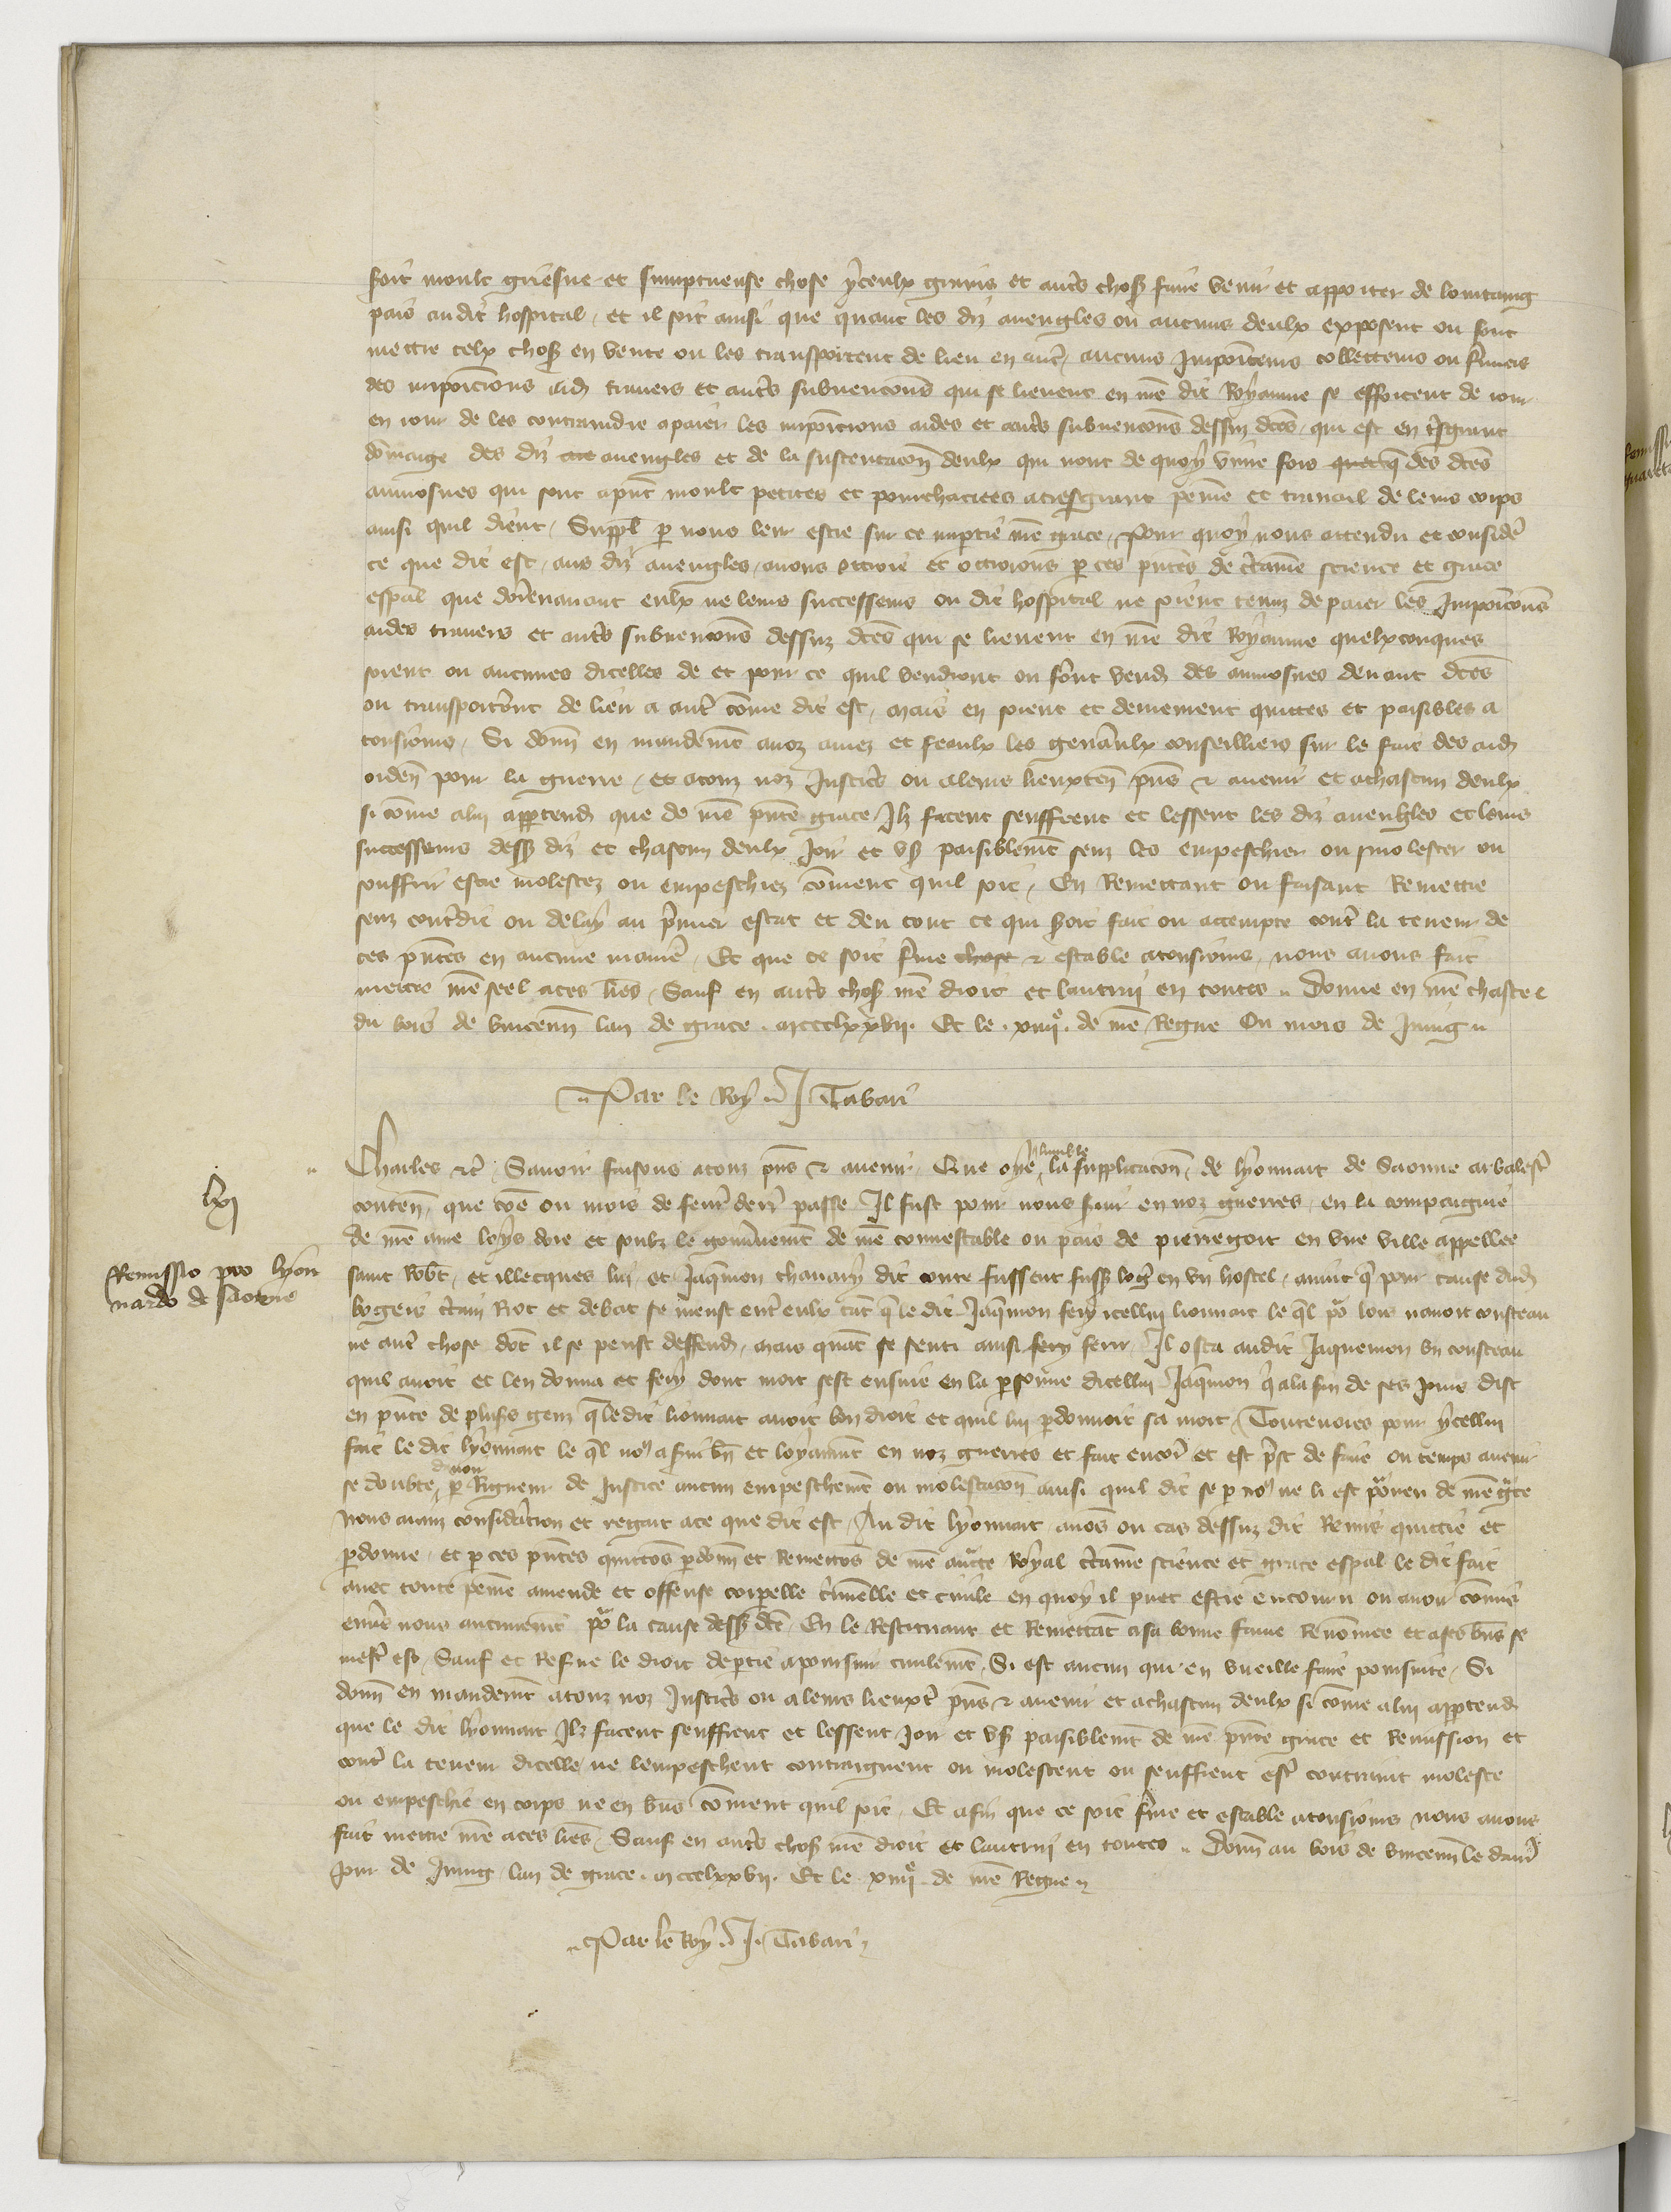 soit moult griesue et sumptueuse chose yceulx grains et autres choses faire venir et apporter de lointaing
pais au dit hospital, et il soit ainsi que quant les diz aueugles ou aucuns deulx exposent ou font
mettre telx choses en vente ou les transportent de lieu en autre, aucuns Impositeurs collecteurs ou fermiers
des imposicions aides trauers et autres subuencions qui se lieuent en nostre dit Royaume se efforcent de iour
en iour de les contraindre a paier les imposicions aides et autres subuencions dessuz dictes, qui est en tresgrant
dommage des diz aueugles et de la sustentacion deulx qui nont de quoy viure fors des dictes
aumosnes qui sont a present moult petites et pourchaciees a tresgrant peine et trauail de leurs corps
ainsi quil dient, Supplient par nous leur estre sur ce impartie nostre grace, Pour quoy nous attendu et consideré
ce que dit est, aus diz aueugles, auons ottroié et ottroions par ces presentes de certaine science et grace
especial que dorenauant eulx ne leurs successeurs ou dit hospital ne soient tenuz de paier les Imposicions
aides trauers et autres subuencions dessuz dictes qui se lieuent en nostre dit Royaume quelxconques
soient ou aucunes dicelles de et pour ce quil vendront ou feront vendre des aumosnes deuant dictes
ou transporteront de lieu a autre comme dit est, Mais en soient et demeurent quittes et paisibles a
tousiours, Si donnons en mandement a noz amez et feaulx les generaulx conseilliers sur le fait des aides
ordenez pour la guerre, et a touz noz Justiciers ou a leurs lieuxtenans presens & auenir et a chascun deulx
si comme a lui appartendra que de nostre presente grace Ilz facent seuffrent et lessent les diz aueugles et leurs
successeurs dessus diz et chascun deulx Joir et vser paisiblement senz les empeschier ou molester ou
souffrir estre molestez ou empeschiez comment quil soit, En Remettant ou faisant Remettre
senz contredit ou delay au premier estat et deu tout ce qui seroit fait ou attempte contre la teneur de
ces presentes en aucune maniere, Et que ce soit ferme chose & estable a tousiours, nous auons fait
mettre nostre seel a ces lettres, Sauf en autres choses nostre droit et lautrui en toutes. Donne en nostre chastel
du bois de vincennes lan de grace. mccclxxvii. Et le. xiiiie. de nostre Regne Ou mois de Juing
Par le Roy J Tabari
Charles etc. Sauoir faisons a touz presens & auenir, Que oye la humble supplicacion, de lyonnart de Saonne arbalestrier
contenant, que comme ou mois de feurier derrenier passe Il fust pour nous seruir en noz guerres, en la compaignie
de nostre ame loys dore et soubz le gouuernement de nostre connestable ou pais de pierregort en vne ville appellee
lxi
Remissio pro lyon
nardo de saonne
saint Robert, et illecques lui et Jaquemon chanary dit conte fussent logez en vn hostel, auint que pour cause dudit
logeis certain Riot et debat se meust entre eulx tant que le dit Jaquemon fery icellui lionnart le quel pour lors nauoit cousteau
ne autre chose dont il se peust deffendre, Mais quant se senti ainsi fery ferir, Il osta audit Jaquemon vn cousteau
quil auoit et len donna et fery dont mort sest ensuie en la personne dicellui Jaquemon que a la fin de ses jours dist
en presence de pluseurs genz que ledit lionnart auoit bon droit et quil lui pardonnoit sa mort, Touteuoies pour ycellui
fait le dit lyonnart le quel nous a serui bien et loyaument en noz guerres et fait encore et est prest de faire ou temps auenir
se doubte par Rigueur de Justice aucun empeschement ou molestacion ainsi quil dit se par nous ne li est pourueu de nostre grace
Nous aians consideracion et regart a ce que dit est, Au dit lyonnart auons ou cas dessuz dit Remis quittié et
pardonne, et par ces presentes quittons pardonnons et Remettons de nostre auctorite Royal certaine science et grace especial le dit fait
auec toute peine amende et offense corporelle criminelle et ciuile en quoy il puet estre encouru ou auoir commis
enuers nous aucunement pour la cause dessus dicte En le Restituant et Remettant a sa bonne fame Renommee et a ses biens se
mestier est, Sauf et Reserue le droit de partie a poursuir ciuilement, Si est aucun qui en vueille faire poursuite, Si
donnons en mandement a touz noz Justiciers ou a leurs lieuxtenans presens & auenir et a chascun deulx si comme a lui appartendra
que le dit lyonnart Ilz facent seuffrent et lessent Joir et vser paisiblement de nostre presente grace et Remission et
contre la teneur dicelle ne lempeschent contraignent ou molestent ou seuffrent estre contraint moleste
ou empeschié en corps ne en biens comment quil soit, Et afin que ce soit ferme et estable a tousiours nous auons
fait mettre nostre a ces lettres, Sauf en autres choses nostre droit et lautrui en toutes. Donné au bois de vincennes le
jour de Juing lan de grace. mccclxxvii. Et le xiiiie. de nostre Regne
Par le Roy. J. Tabari